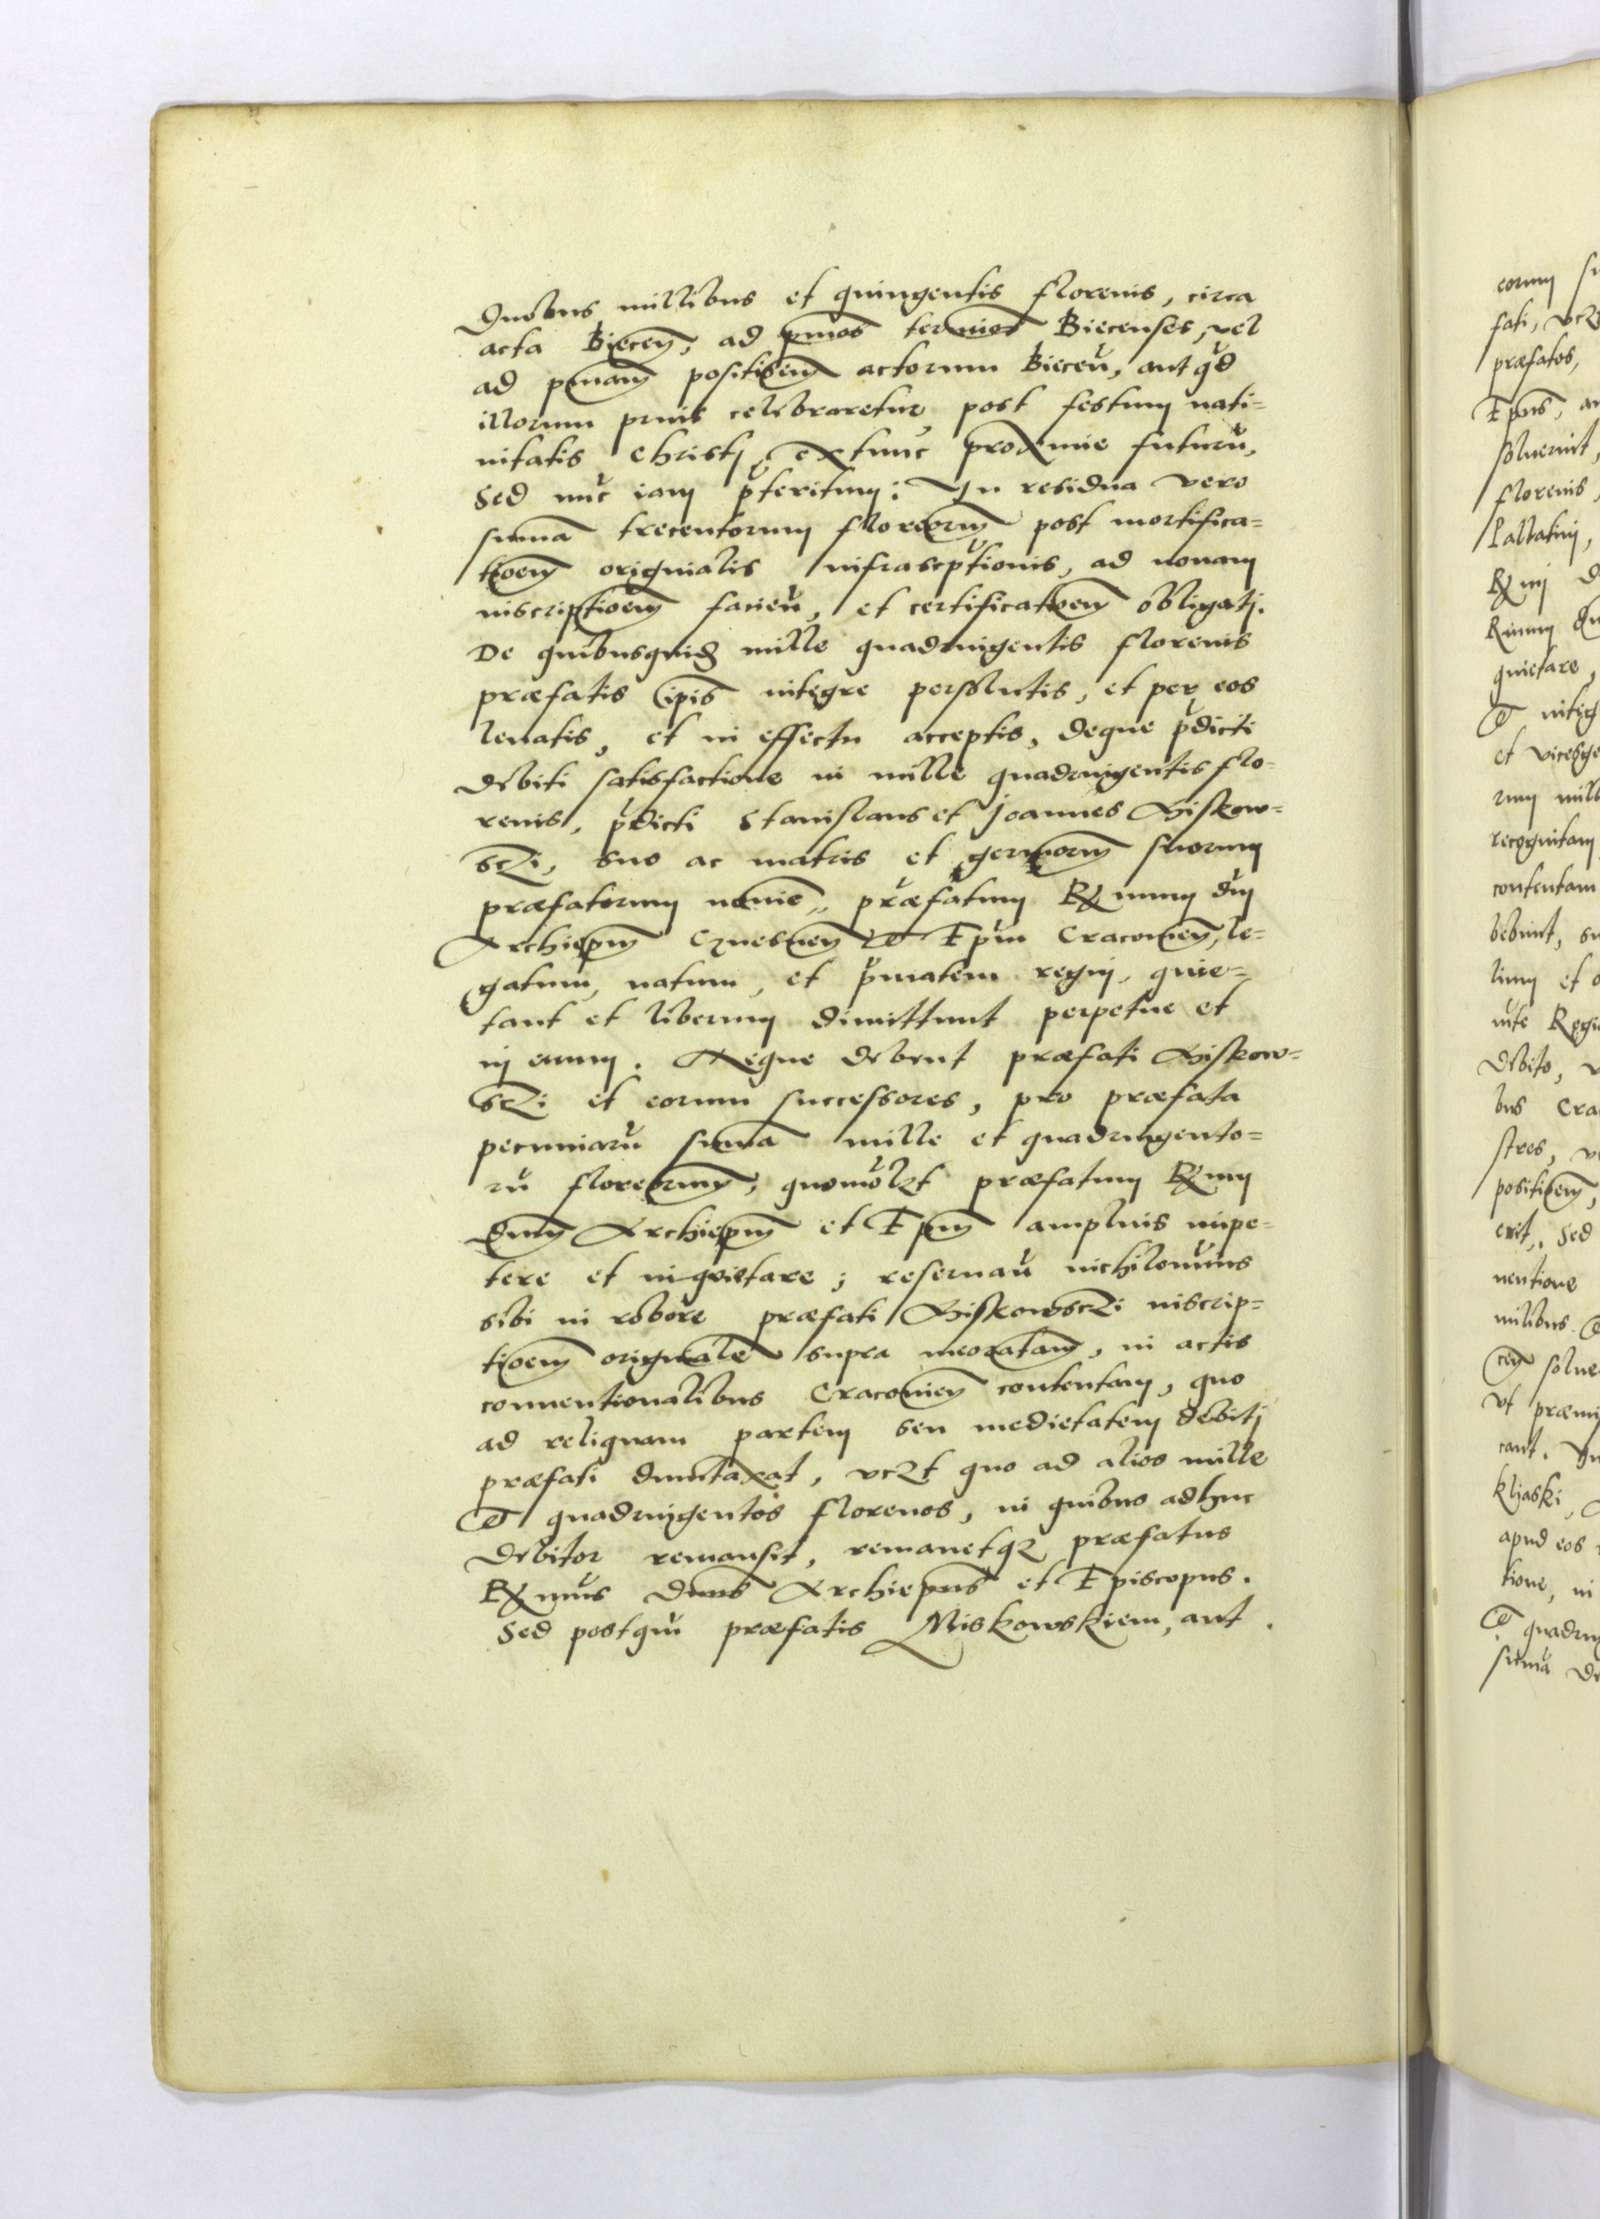 Duobus millibus et quingentis florenis, circa
acta Biecen̄, ad pmos termios Biecenses, vel
ad pmam positioem actorum Biecen̄, aut qd
illorum prius celebraretur post festum nati=
uitatis Christj, extunc proxime futuru,
Sed nuc iam pteritum: In residua vero
summa trecentorum floreorum post mortifica=
tioem originalis infrascptionis, ad nouam
inscriptioem facien̄, et certificatioem obligatj.
De quibusquid mille quadringentis florenis
præfatis ipis integre persolutis, et per eos
leuatis, et in effectu acceptis, deque pdicti
debiti satisfactione in mille quadringentis flo=
renis, pdicti Stanislaus et Joannes Miskow=
sczi, suo ac matris et germorum suorum
præfatorum nomie, præfatum Rx mum dm
Archiepm Gznesnen̄ & Epm Cracouien̄, le=
gatum, natum, et pmatem regni, quie=
tant et liberum dimittunt perpetue et
in euum. Neque debent præfati Miskow=
sczi et eorum successores, pro præfata
pecuniaru summa mille et quadringento=
ru floreorum, quomolzt præfatum Rx mum
dnum Archiepm et Epm amplius impe=
tere et inquietare; reseruan̄ nichilominus
sibi in robore præfati Miskowsczi inscrip=
tioem originale supra meoratam, in actis
conuentionalibus Cracouien̄ contentam, quo
ad reliquam partem seu medietatem debitj
præfati duntaxat, vczt quo ad alios mille
& quadringentos florenos, in quibus adhuc
debitor remansit, remanetqz præfatus
Rx mus dnus Archiepus et Episcopus.
Sed postqm præfatis Miskowskiem, aut
eorum
fati,
præfatos,
Epus,
soluerint,
florenis
Pallatinj,
quietare,
& integ
recognitam
contentam
linm et
debito,
bus Cra
stres,
positioem,
erit. Sed
uentione
vt præmi
cant.
kljaski,
apud eos
tione, in
& quadrin
summa de